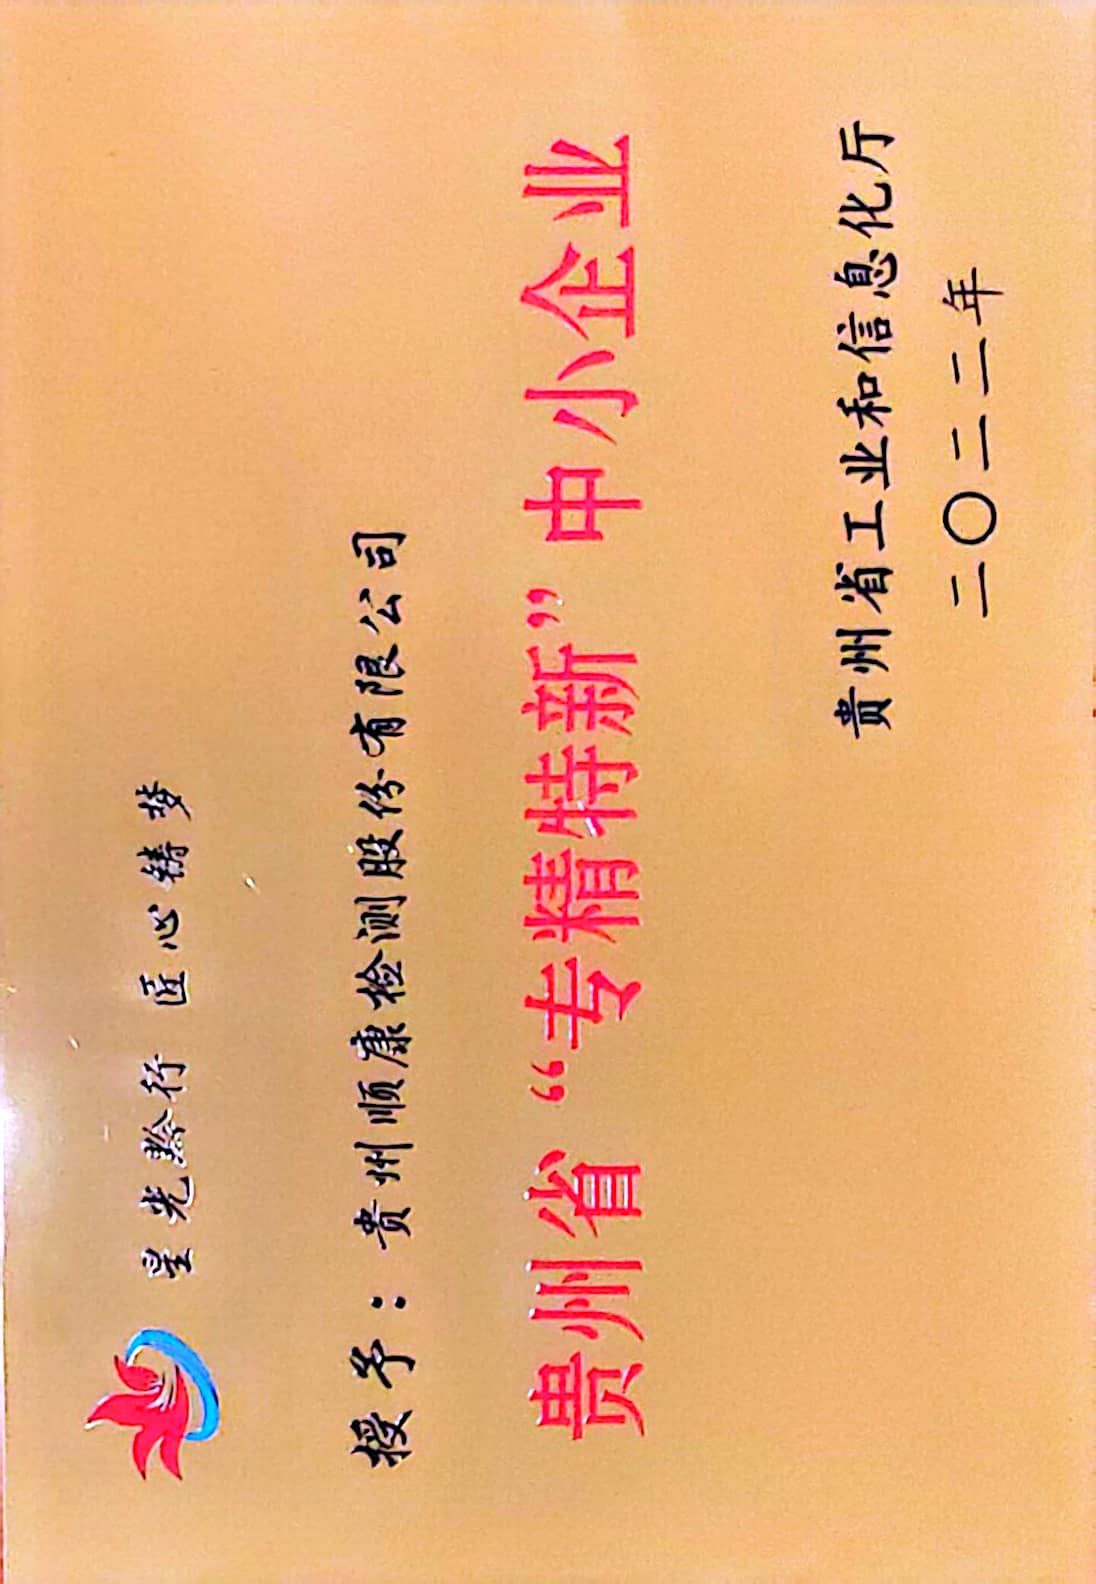 星光黔行 匠心铸梦
授予：贵州顺康检测股份有限公司
贵州省“专精特新”中小企业
贵州省工业和信息化厅
二〇二二年